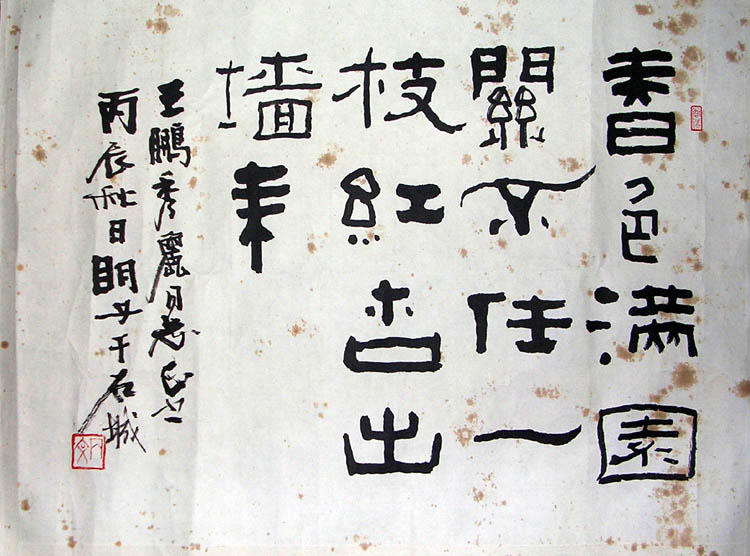 春色滿園
關不住一
枝紅杏出
墻来
王鵬秀麗同志正之
丙辰秋日明于石城